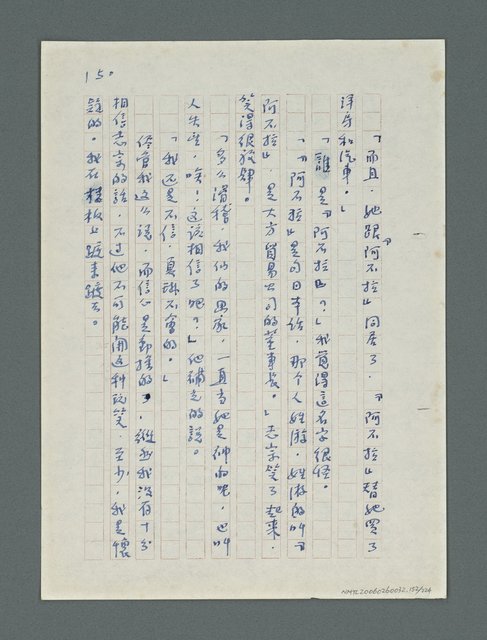 15。
「而且，她跟『阿不拉』同居了，『阿不拉』替她買了
洋房和汽車。」
「誰是『阿不拉』？」我覺得這名字很怪。
「『阿不拉』是句日本話，那个人姓游，姓游的叫『
阿不拉』，是大方貿易公司的董事長。」志宗笑了起來，
笑得很放肆。
「多么滑稽，我们的画家，一直当她是神的呢，也叫
人失望，唉！这該相信了吧？」他補充的說。
「我还是不信，夏琳不會的。」
儘管我这么說，而信心是動搖的，縱然我沒有十分
相信志宗的話，不过他不可能開这种玩笑，至少，我是懷
疑的。我在樓板上踱來踱去。
NMTL20060260032.153/324